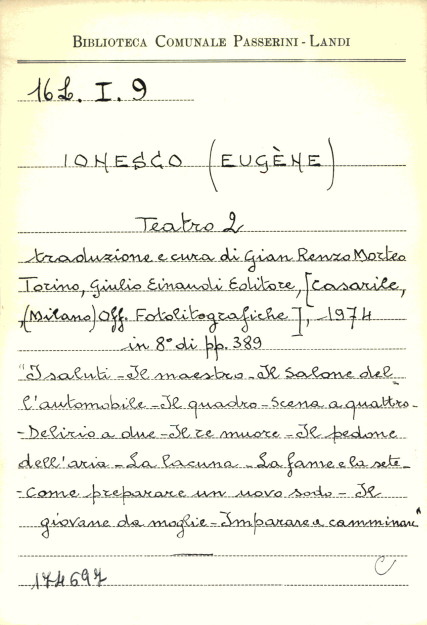 BIBLIOTECA COMUNALE PASSERINI - LANDI
16L. I. 9
IONESCO (EUGÈNE)
Teatro 2
traduzione e cura di Gian Renzo Morteo
Torino, Giulio Einaudi Editore, [Casarile,
(Milano) Off. Fotolitografiche], 1974
in 8° di pp. 389
"I saluti - Il maestro - Il Salone del
l'automobile - Il quadro - Scena a quattro -
- Delirio a due - Il re muore - Il pedone
dell'aria - La lacuna - La fame e la sete -
- Come preparare un uovo sodo - Il
giovane da moglie - Imparare a camminare"
174697
C